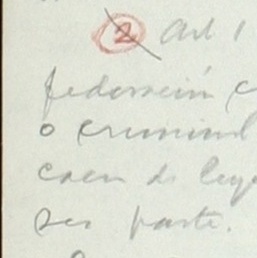 2 Art 1
federación c
o criminal
caen de leye
ser parte.